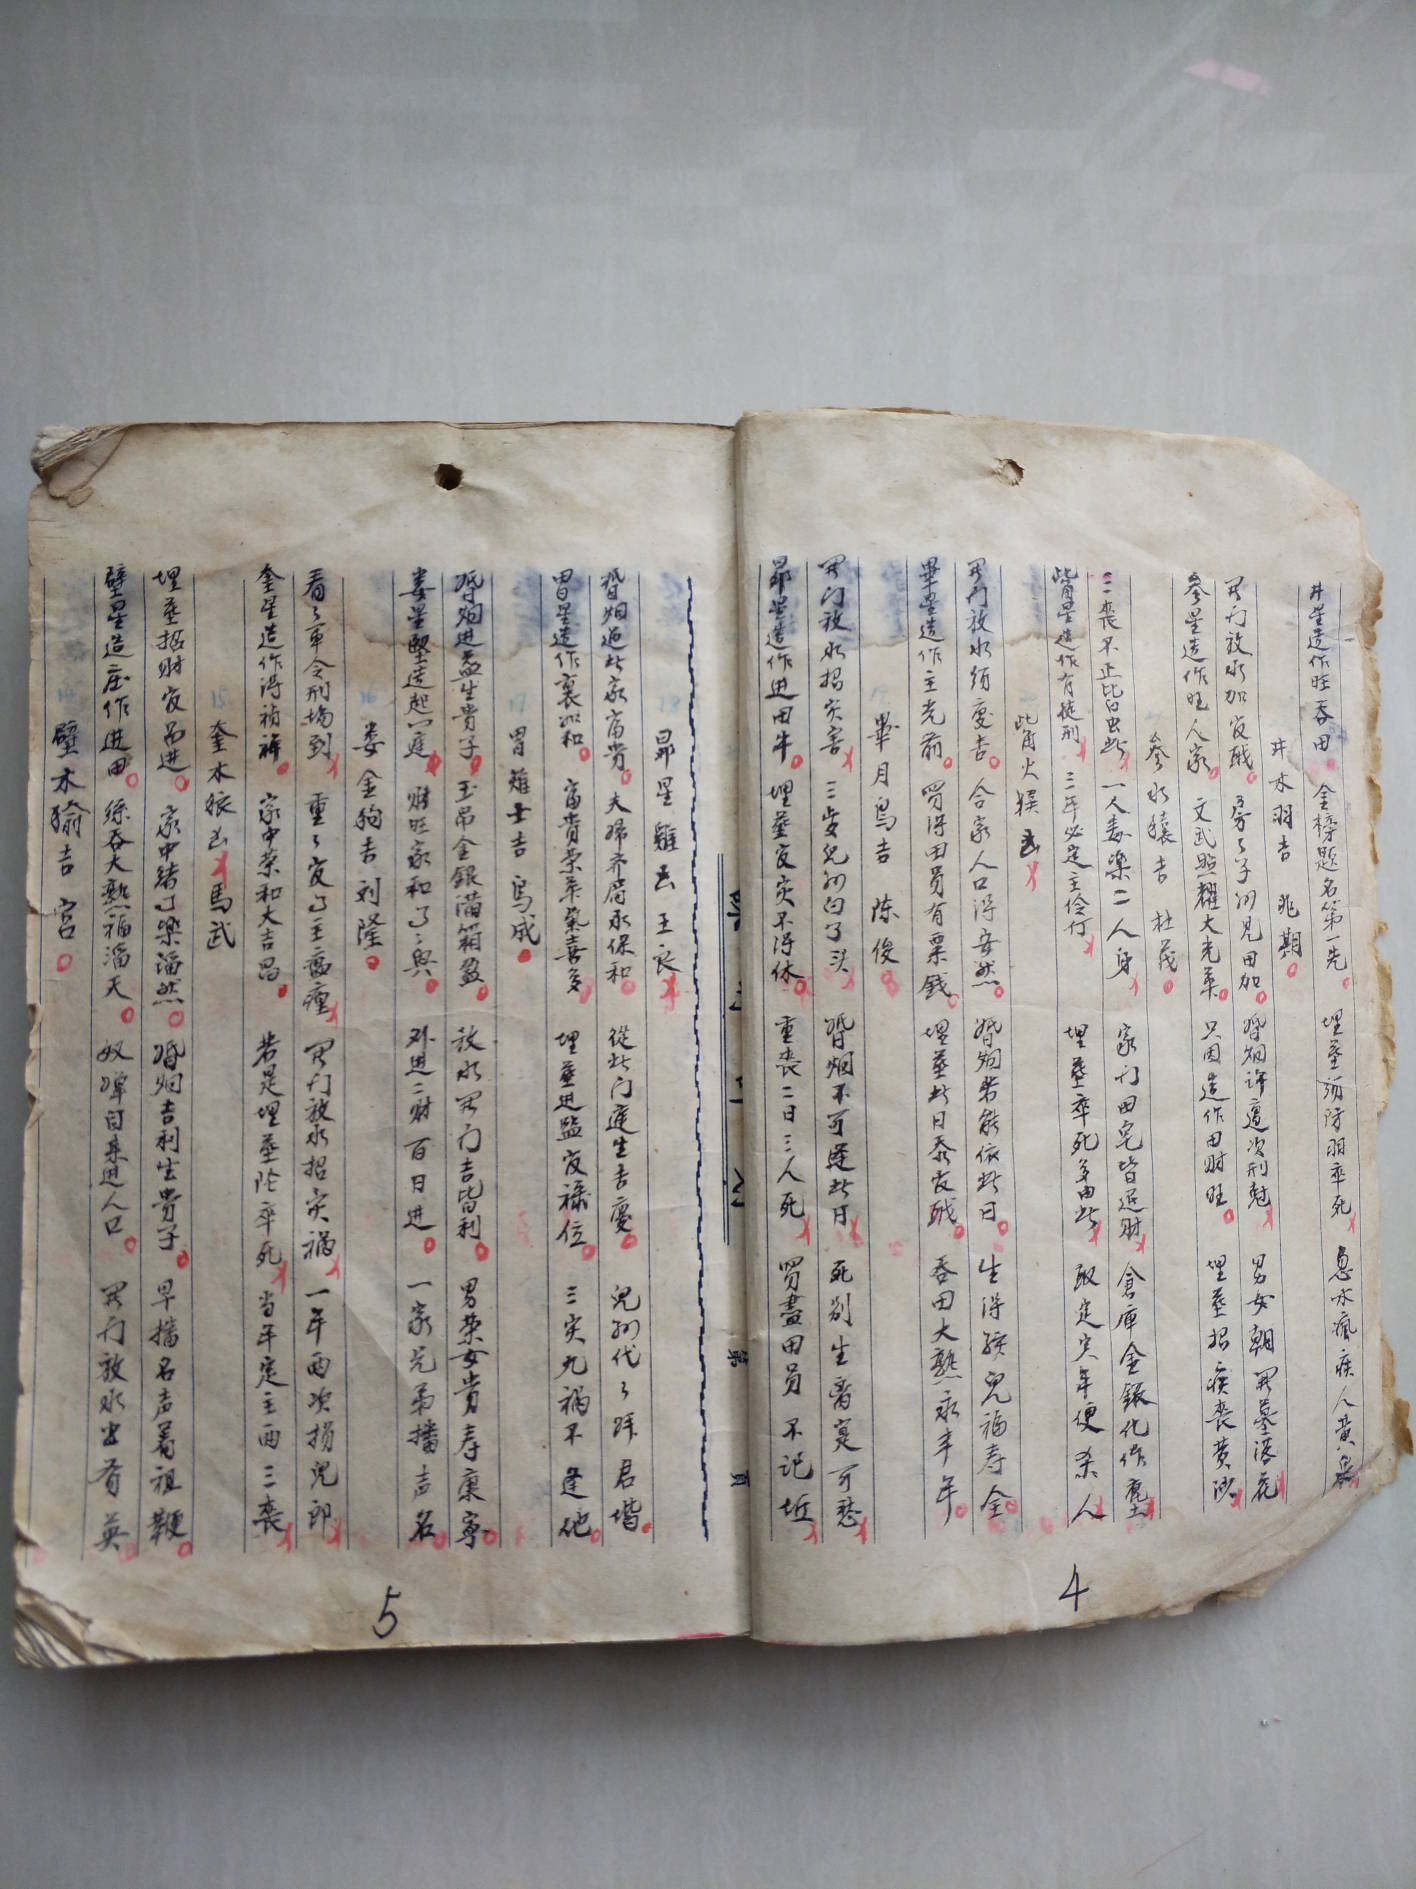 井星造作旺蚕田 金榜題名第一先 埋塟須防羽卒死 急水瘋疾人黄泉
井木羽吉 兆期
開门放水加官戝 房々子孙見田加 婚烟许遭次刑尅 男女朝開墓落花
参星造作旺人家 文武照耀大光華 只因造作田財旺 埋塟招疾喪黄沙
参水猿吉 杜茂
三喪不止皆由此 一人毒藥二人身 家门田宅皆退財 倉庫金銀化作塵
觜星造作有徒刑 三年必定主伶仃 埋塟卒死多由此 取定寅年便杀人
觜火猴凶
開门放水须慶吉 合家人口得安然 婚烟若能依此日 生得孩兒福寿全
畢星造作主光前 買得田员有粟錢 埋塟此日添官戝 蚕田大熟永丰年
畢月烏吉 陈俊
開门放水招灾害 三歲兒孙白了头 婚烟不可逢此日 死别生离寔可愁
昴星造作进田牛 埋塟官灾不得休 重丧二日三人死 買盡田员不记坵
第 頁
昴星雞凶 王良
婚烟逢此家富贵 夫婦齐眉永保和 從此门庭生吉慶 兒孙代々拜君堦
胃星造作襄如和 富貴荣華氣喜多 埋塟进监官禄位 三灾九祸不逢他
17 胃雉土吉 烏成
婚烟进益生贵子 玉帛金銀满箱盈 放水開门吉皆利 男荣女贵寿康寧
娄星竪造起门庭 财旺家和了々興 外进二财百日进 一家兄弟播声名
16 娄金狗吉 刘隆
看々軍令刑塲到 重々官々主瘟㾮 開门放水招灾祸 一年两次损兒郎
奎星造作得祯祥 家中荣和大吉昌 若是埋塟陀卒死 当年定主两三丧
15 奎木狼凶 馬武
埋塟招财官品进 家中绪了樂滔然 婚烟吉利生贵子 早播名声着祖鞭
壁星造庄作进田 絲蚕大熟福滔天 奴婢自来进人口 開门放水出者英
14 壁木㺄吉 宫
4
5